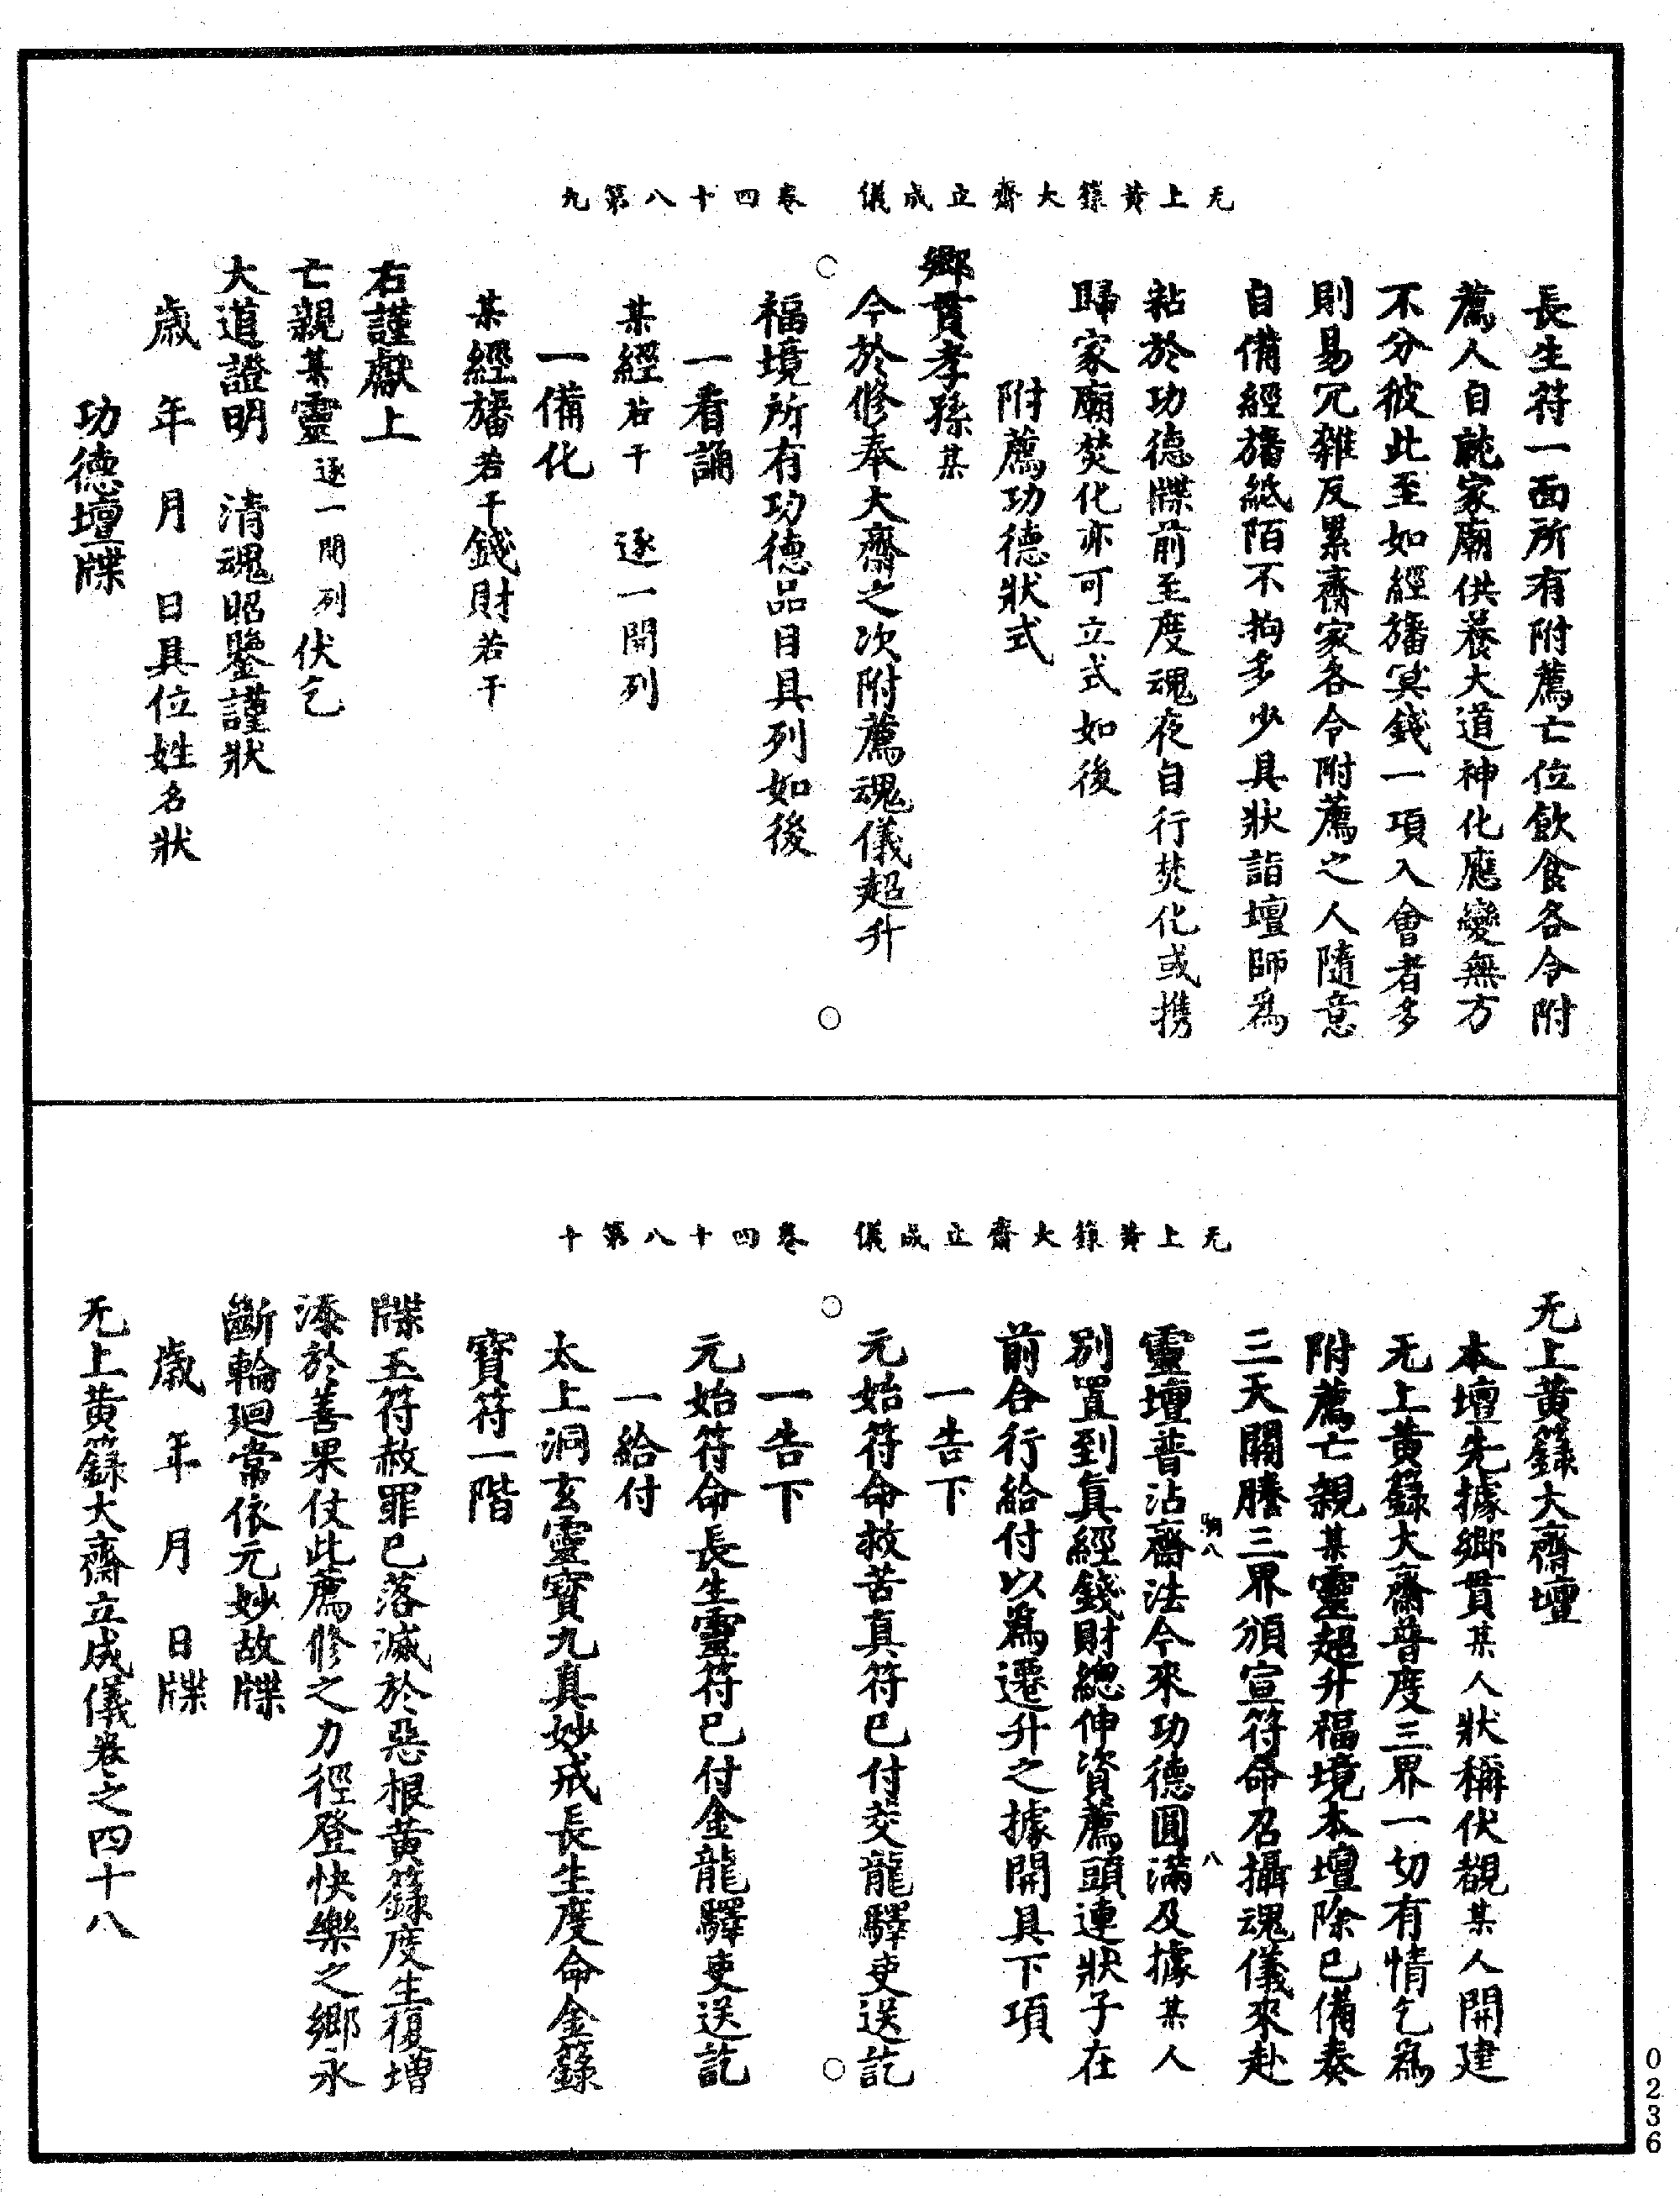 无上黃籙大齋立成儀　卷四十八第九
長生符一面所有附薦亡位飲食各令附
薦人自就家廟供養大道神化應變無方
不分彼此至如經旛冥錢一項入會者多
則易冗雜反累齋家各令附薦之人隨意
自備經旛紙陌不拘多少具狀詣壇師爲
粘於功德牒前至度魂夜自行焚化或攜
歸家廟焚化亦可立式如後
附薦功德狀式
鄉貫孝孫某
今於修奉大齋之次附薦魂儀超升
福境所有功德品目具列如後
一看誦
某經若干　逐一開列
一備化
某經旛若干錢財若干
右謹獻上
亡親某靈逐一開列伏乞
大道證明　清魂昭鑒謹狀
歲　年　月　日具位姓名狀
功德壇牒
无上黃籙大齋立成儀　卷四十八第十
无上黃籙大齋壇
本壇先據鄉貫某人狀稱伏覩某人開建
无上黃籙大齋普度三界一切有情乞爲
附薦亡親某靈超升福境本壇除已備奏
三天關牒三界頒宣符命召攝魂儀來赴
靈壇普沾齋法今來功德圓滿及據某人
別置到眞經錢財總伸資薦頭連狀子在
前合行給付以爲遷升之據開具下項
一告下
元始符命救苦真符已付交龍驛吏送訖
一告下
元始符命長生靈符已付金龍驛吏送訖
一給付
太上洞玄靈寶九真妙戒長生度命金籙
寶符一階
牒玉符赦罪已落滅於惡根黃籙度生復增
添於善果仗此薦修之力徑登快樂之鄉永
斷輪廻常依元妙故牒
歲　年　月　日牒
无上黃籙大齋立成儀卷之四十八
0236